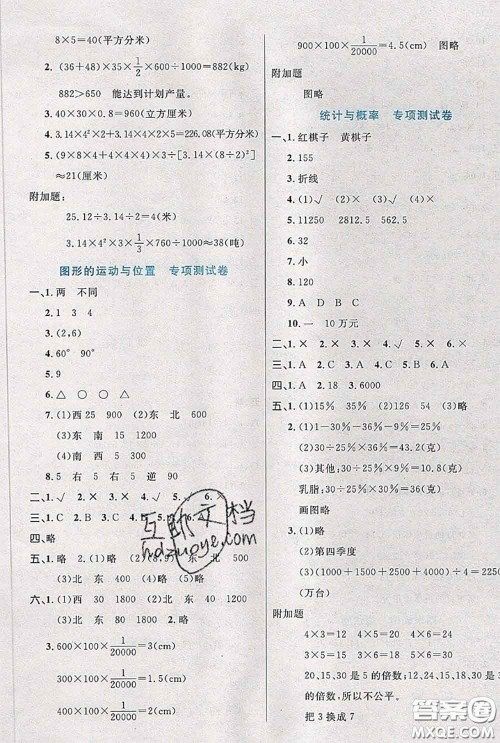 8×5=40(平方分米)
2.(36+48)×35×1/2×600÷1000=882(kg)
882>650 能达到计划产量。
3.40×30×0.8=960(立方厘米)
4.3.14×4²×2+3.14×4×2×5=226.08(平方分米)
5.(9×8×4+4×4×4)×3÷[3.14×(8÷2)²]
≈21(厘米)
附加题:
25.12÷3.14÷2=4(m)
3.14×4²×3×1/3×760÷1000≈38(吨)
图形的运动与位置 专项测试卷
一、1.两 不同
2.1 3 4
3.(2,6)
4.60° 90°
5.9
6.△ ○ ○ △
7.(1)西 25 900 (2)东 北 600
(3)东 南 15 1200
(4)南 西 5 1800
8.5 右 5 右 5 逆 90
二、1.√ 2.× 3.× 4.√ 5. 6.×
三、1.C 2.B 3.C 4.A 5. 6.
四、略
五、1.略 2.(1)略 (2)(8,9) 东 北 500
(3)北 东 400 (4)略
六、1.(1)西 30 1800 (2)北 东 50 1200
(3)北 东 80 1800 2.略
3.600×100×1/20000=3(cm)
400×100×1/20000=2(cm)
900×100×1/20000=4.5(cm) 图略
附加题
图略
统计与概率 专项测试卷
一、1.红棋子 黄棋子
2.155
3.折线
4.(1)√ (2)√ (3)× (4)×
5.11250 2812.5 562.5
6.32
7.小
8.120
9.A D B C
10.一 10万元
二、1.× 2.× 3.× 4.√ 5.√ 6.×
三、1.A 2.C 3.A 4.C 5.C 6.A
四、1.A 2.18 3.6000
五、1.(1)15% 35% (2)126 54 (3)略
2.(1)1-30%-25%-36%=9%
(2)30÷25%×36%=43.2(克)
(3)其他:30÷25%×9%=10.8(克)
乳脂:30÷25%×30%=36(克)
画图略
3.(1)略
(2)第四季度
(3)(1000+1500+2500+4000)÷4=2250
(万台)
附加题
4×3=12 4×5=20 4×6=24
5×3=15 5×6=30 3×6=18
20,15,30是5的倍数;12,24,15,18,30是3
的倍数,所以不公平。
把3换成7
互助文档
hdzuoye.com
答案圈
MXQE.COM